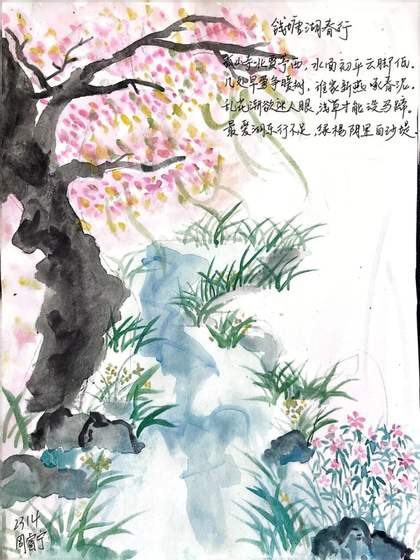 钱塘湖春行
孤山寺北贾亭西，水面初平云脚低.
几处早莺争暖树，谁家新燕啄春泥.
乱花渐欲迷人眼，浅草才能没马蹄.
最爱湖东行不足，绿杨阴里白沙堤.
2314